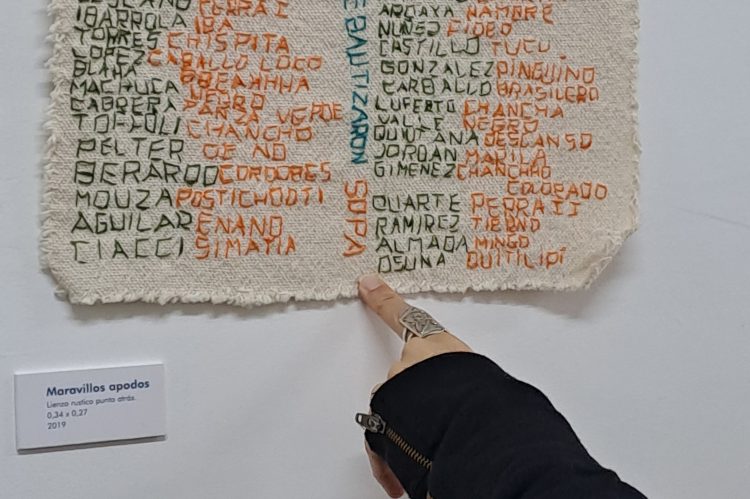 IBARROLA IBA
TORRES CHISPITA
LOPEZ CABALLO LOCO
MACHUCA
CABRERA PERRO
TOFFOLI PANZA VERDE
CHANCHO
PELTER
BERARDO CORDOBES
MOUZA POSTICHOOTI
AGUILAR ENANO
CIACCI SIMATIA
E BAUTIZARON SOPA
ARGAYA HAMBRE
NUÑEZ FIDEO
CASTILLO TUCU
GONZALEZ PINGUINO
CARBALLO BRASILERO
LUFERTO CHANCHA
VALLE NEGRO
QUINTANA DESCANSO
JORDAN MARILA
GIMENEZ CHANCHHO
COLORADO
DUARTE PERRAII
RAMIREZ TIERNO
ALMADA MINGO
OSUNA QUITILIPÍ
Maravillos apodos
Lienzo rustico punto atrás.
0,34 x 0,27
2019